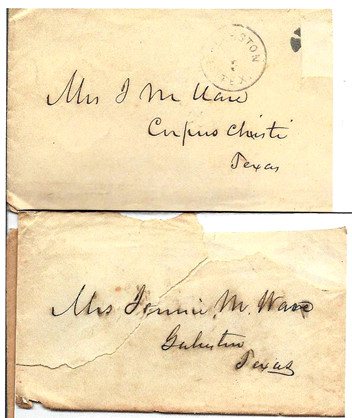 GALVESTON
TEX.
Mrs J M Ware
Corpus Christi
Texas
Mrs Jennie M. Ware
Galveston
Texas